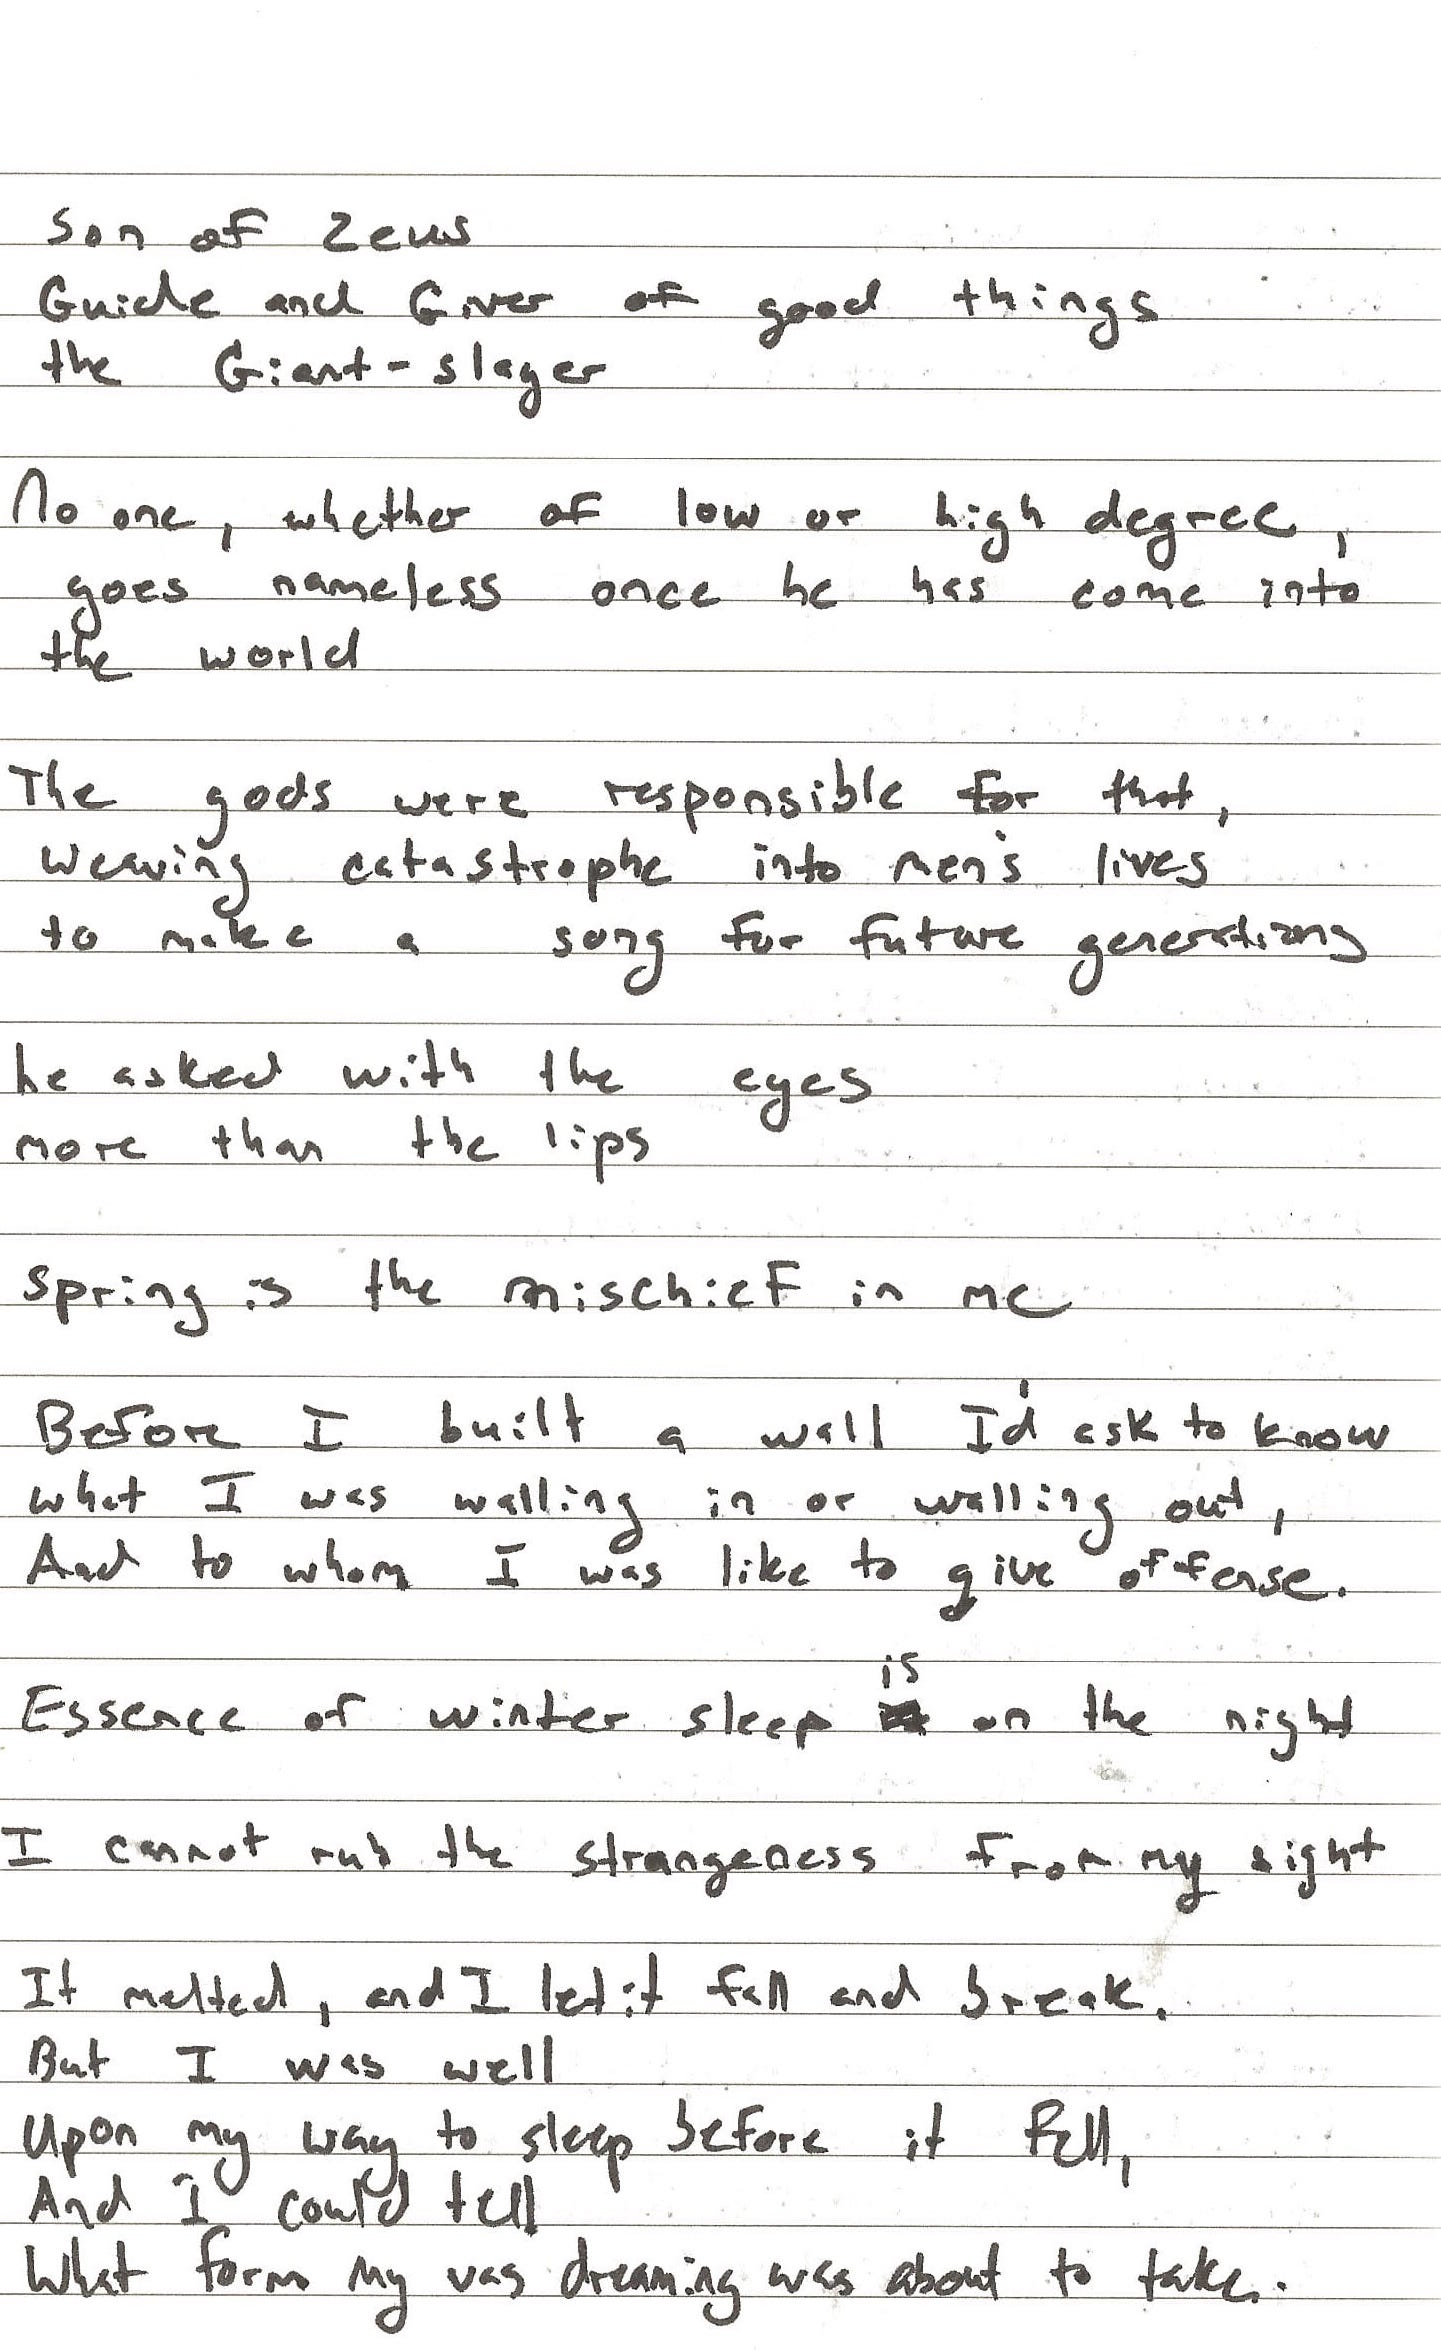 Son of Zeus
Guide and Giver of good things
the Giant-slayer
No one, whether of low or high degree,
goes nameless once he has come into
the world
The gods were responsible for that,
weaving catastrophe into men's lives
to make a song for future generations
he asked with the eyes
more than the lips
Spring is the mischief in me
Before I built a wall I'd ask to know
what I was walling in or walling out,
And to whom I was like to give offense.
Essence of winter sleep is on the night
I cannot rub the strangeness from my sight
It melted, and I let it fall and break.
But I was well
Upon my way to sleep before it fell,
And I could tell
What form my vas dreaming was about to take.